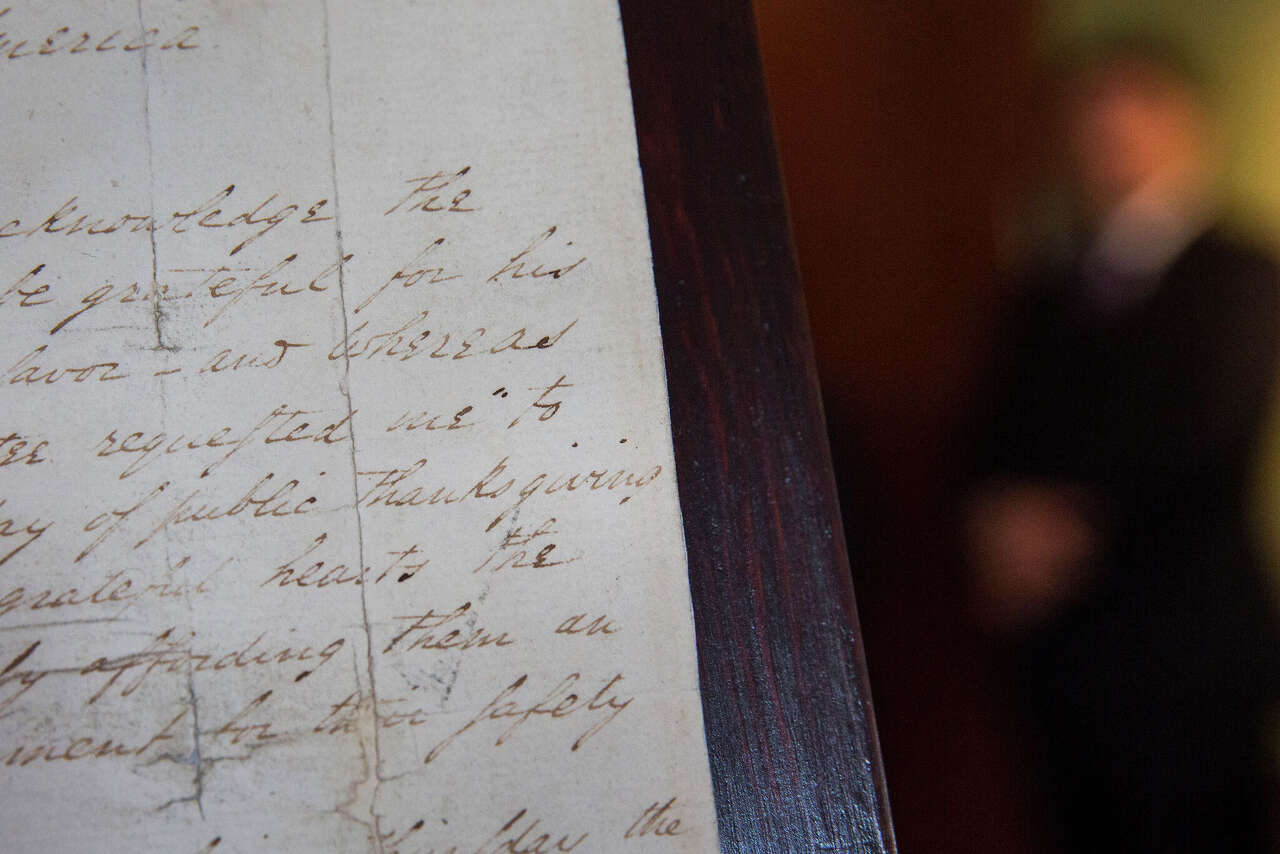 merica.
cknowledge the
be grateful for his
favor - and Whereas
tee requested me "to
ay of public thanksgiving
grateful hearts the
ly affording them an
nment for their safety
Thursday the